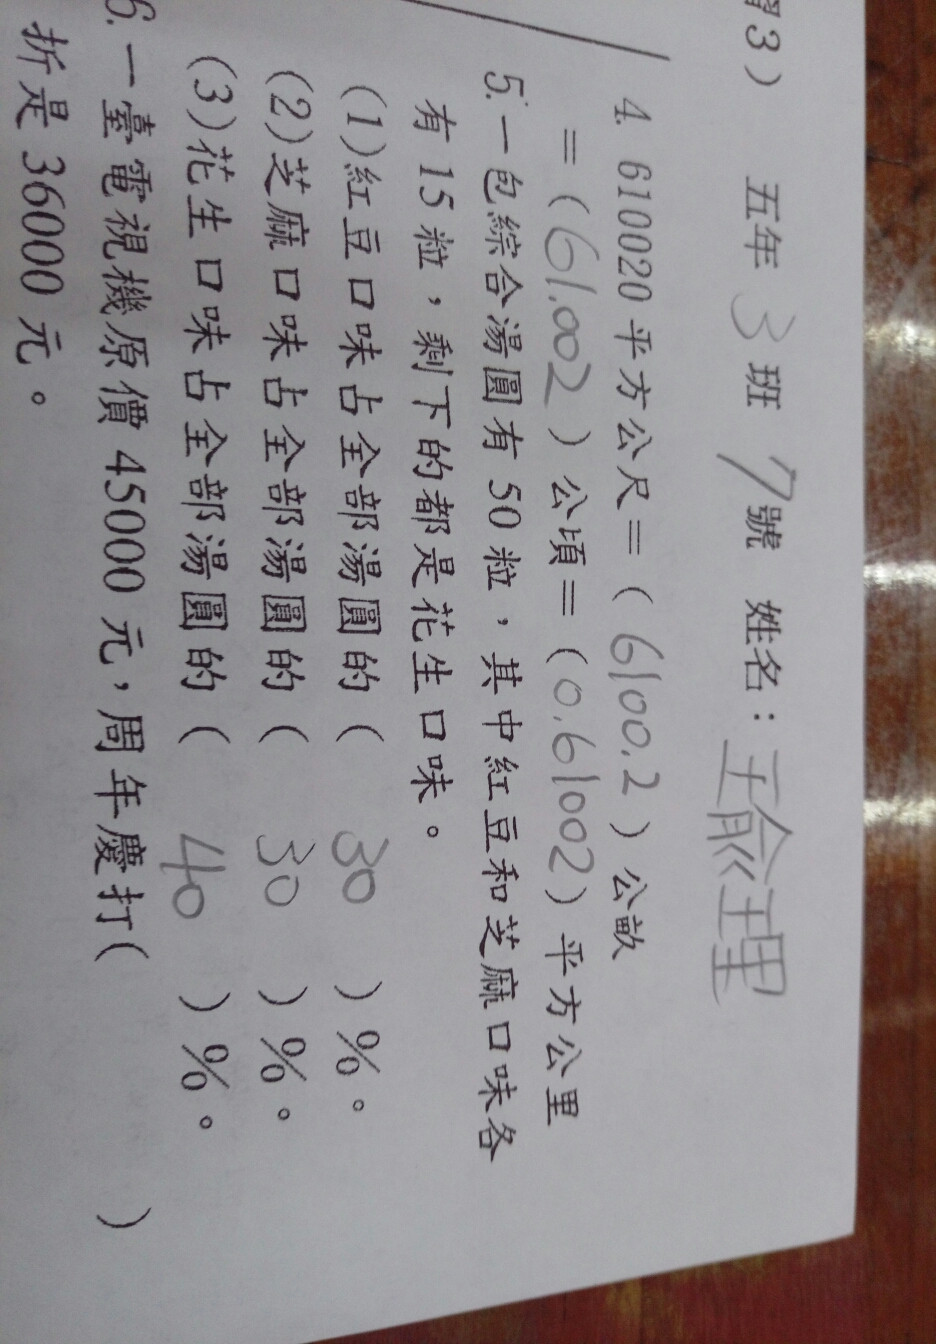 習3) 五年 3 班 7 號 姓名：王俞理
4. 610020 平方公尺＝( 6100.2 ) 公畝
＝( 61.002 ) 公頃＝( 0.61002 ) 平方公里
5. 一包綜合湯圓有 50 粒，其中紅豆和芝麻口味各
有 15 粒，剩下的都是花生口味。
(1)紅豆口味占全部湯圓的( 30 )%。
(2)芝麻口味占全部湯圓的( 30 )%。
(3)花生口味占全部湯圓的( 40 )%。
6. 一臺電視機原價 45000 元，周年慶打( )
折是 36000 元。